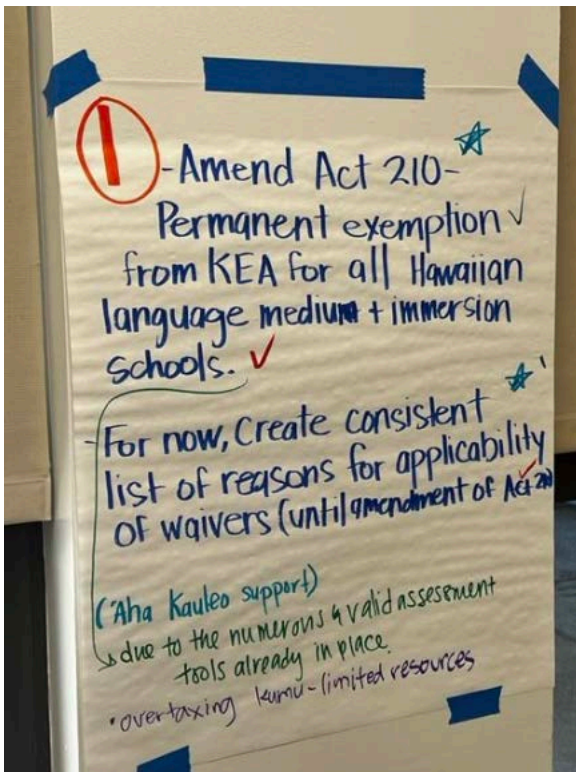 1
-Amend Act 210-
Permanent exemption ✓
from KEA for all Hawaiian
language medium + immersion
schools. ✓
-For now, Create consistent
list of reasons for applicability
of waivers (until amendment of Act 210)
('Aha Kauleo support)
due to the numerous & valid assesement
tools already in place.
• overtaxing kumu-limited resources